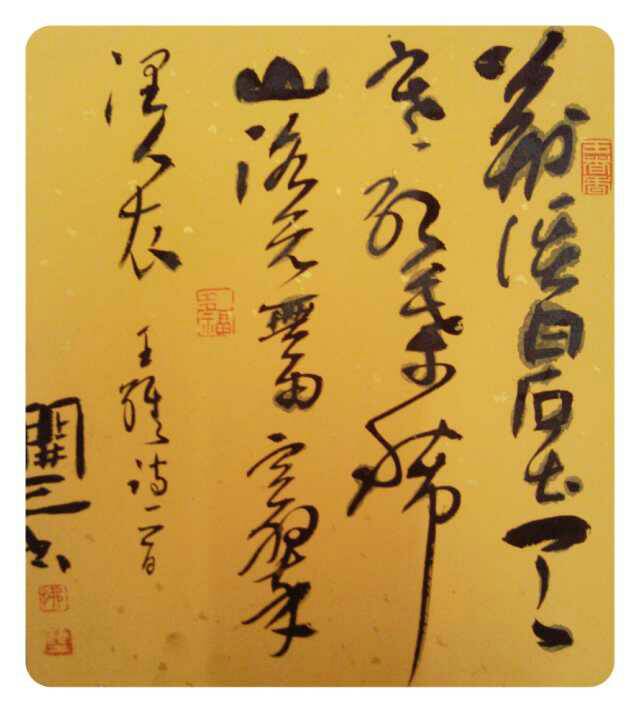 荊溪白石出天
寒紅葉稀
山路元無雨空翠
濕人衣 王維詩一首
開三书